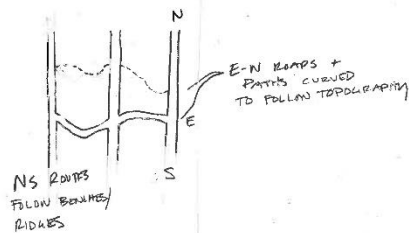 N
E-N ROADS +
PATHS CURVED
TO FOLLOW TOPOGRAPHY
E
S
NS ROUTES
FOLOW BENCHES/
RIDGES